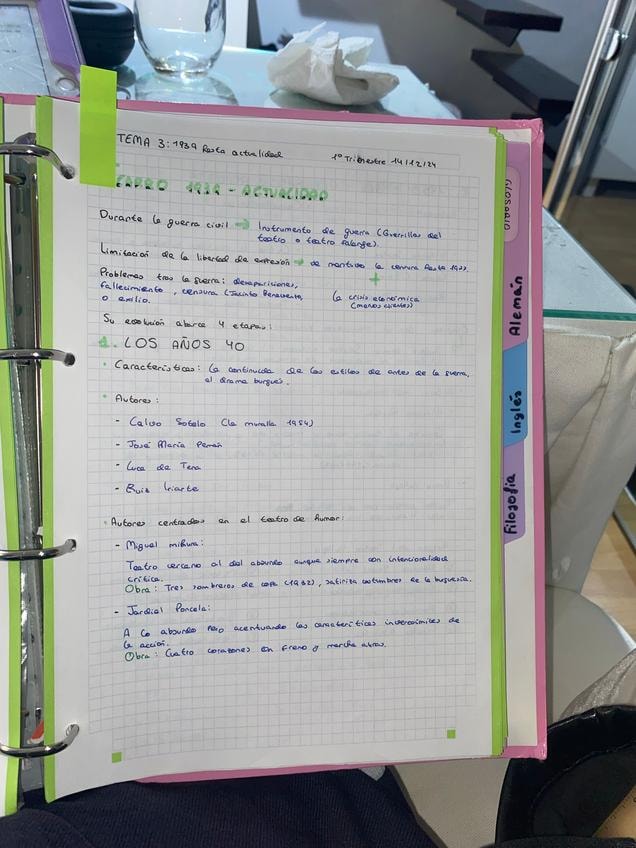 TEMA 3: 1939 hasta actualidad 1º Trimestre 14/12/24
TEATRO 1939 - ACTUALIDAD
Durante la guerra civil → Instrumento de guerra (Guerrillas del
teatro o teatro falange).
Limitación de la libertad de expresión → se mantuvo la censura hasta
Problemas tras la guerra: desapariciones, +
fallecimiento, censura (Jacinto Benavente, La crisis económica
o exilio. (menos clientes)
Su evolución abarca 4 etapas:
1. LOS AÑOS 40
Características: la continuida de los estilos de antes de la guerra,
el drama burgues.
Autores:
- Calvo Sotelo (la muralla 1954)
- José María Pemán
- Luca de Tena
- Ruiz Iriarte
Autores centrados en el teatro de humor:
- Miguel mihura:
Teatro cercano al del absurdo aunque siempre con intencionalidad
crítica.
Obra: Tres sombreros de copa (1932), satiriza costumbres de la burguesía.
- Jardiel Poncela:
A lo absurdo pero acentuando las características inverosímiles de
la acción.
Obra: Cuatro corazones con freno y marcha atras.
GLOSARIO
Alemán
Inglés
Filosofía